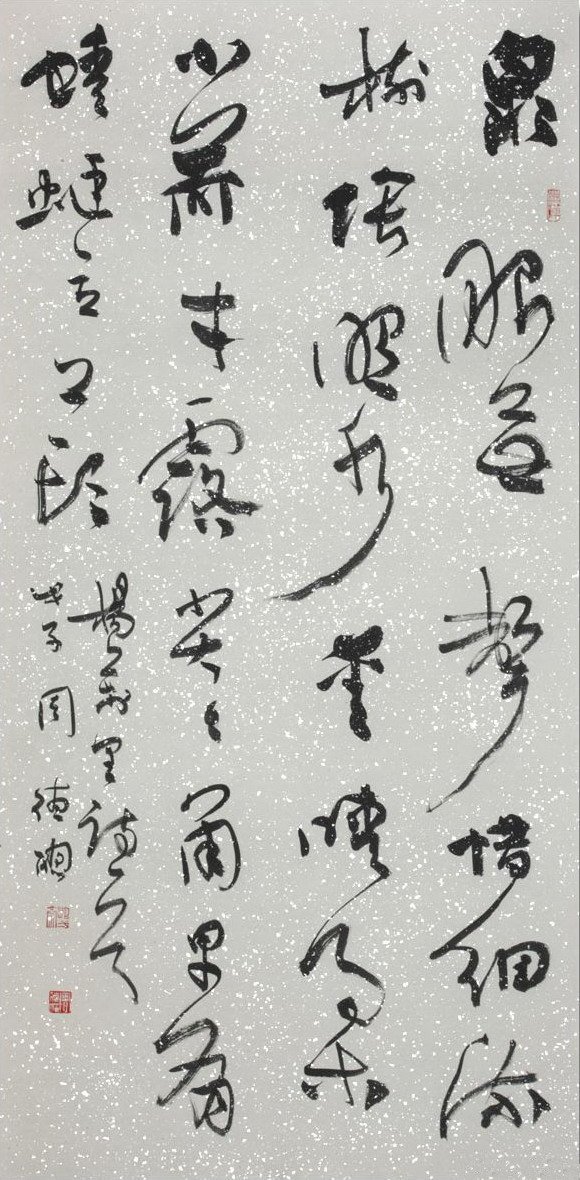 泉眼無聲惜細流
樹陰照水愛晴柔
小荷才露尖々角早有
蜻蜓立上頭
楊萬里詩一首
戊子周德聰